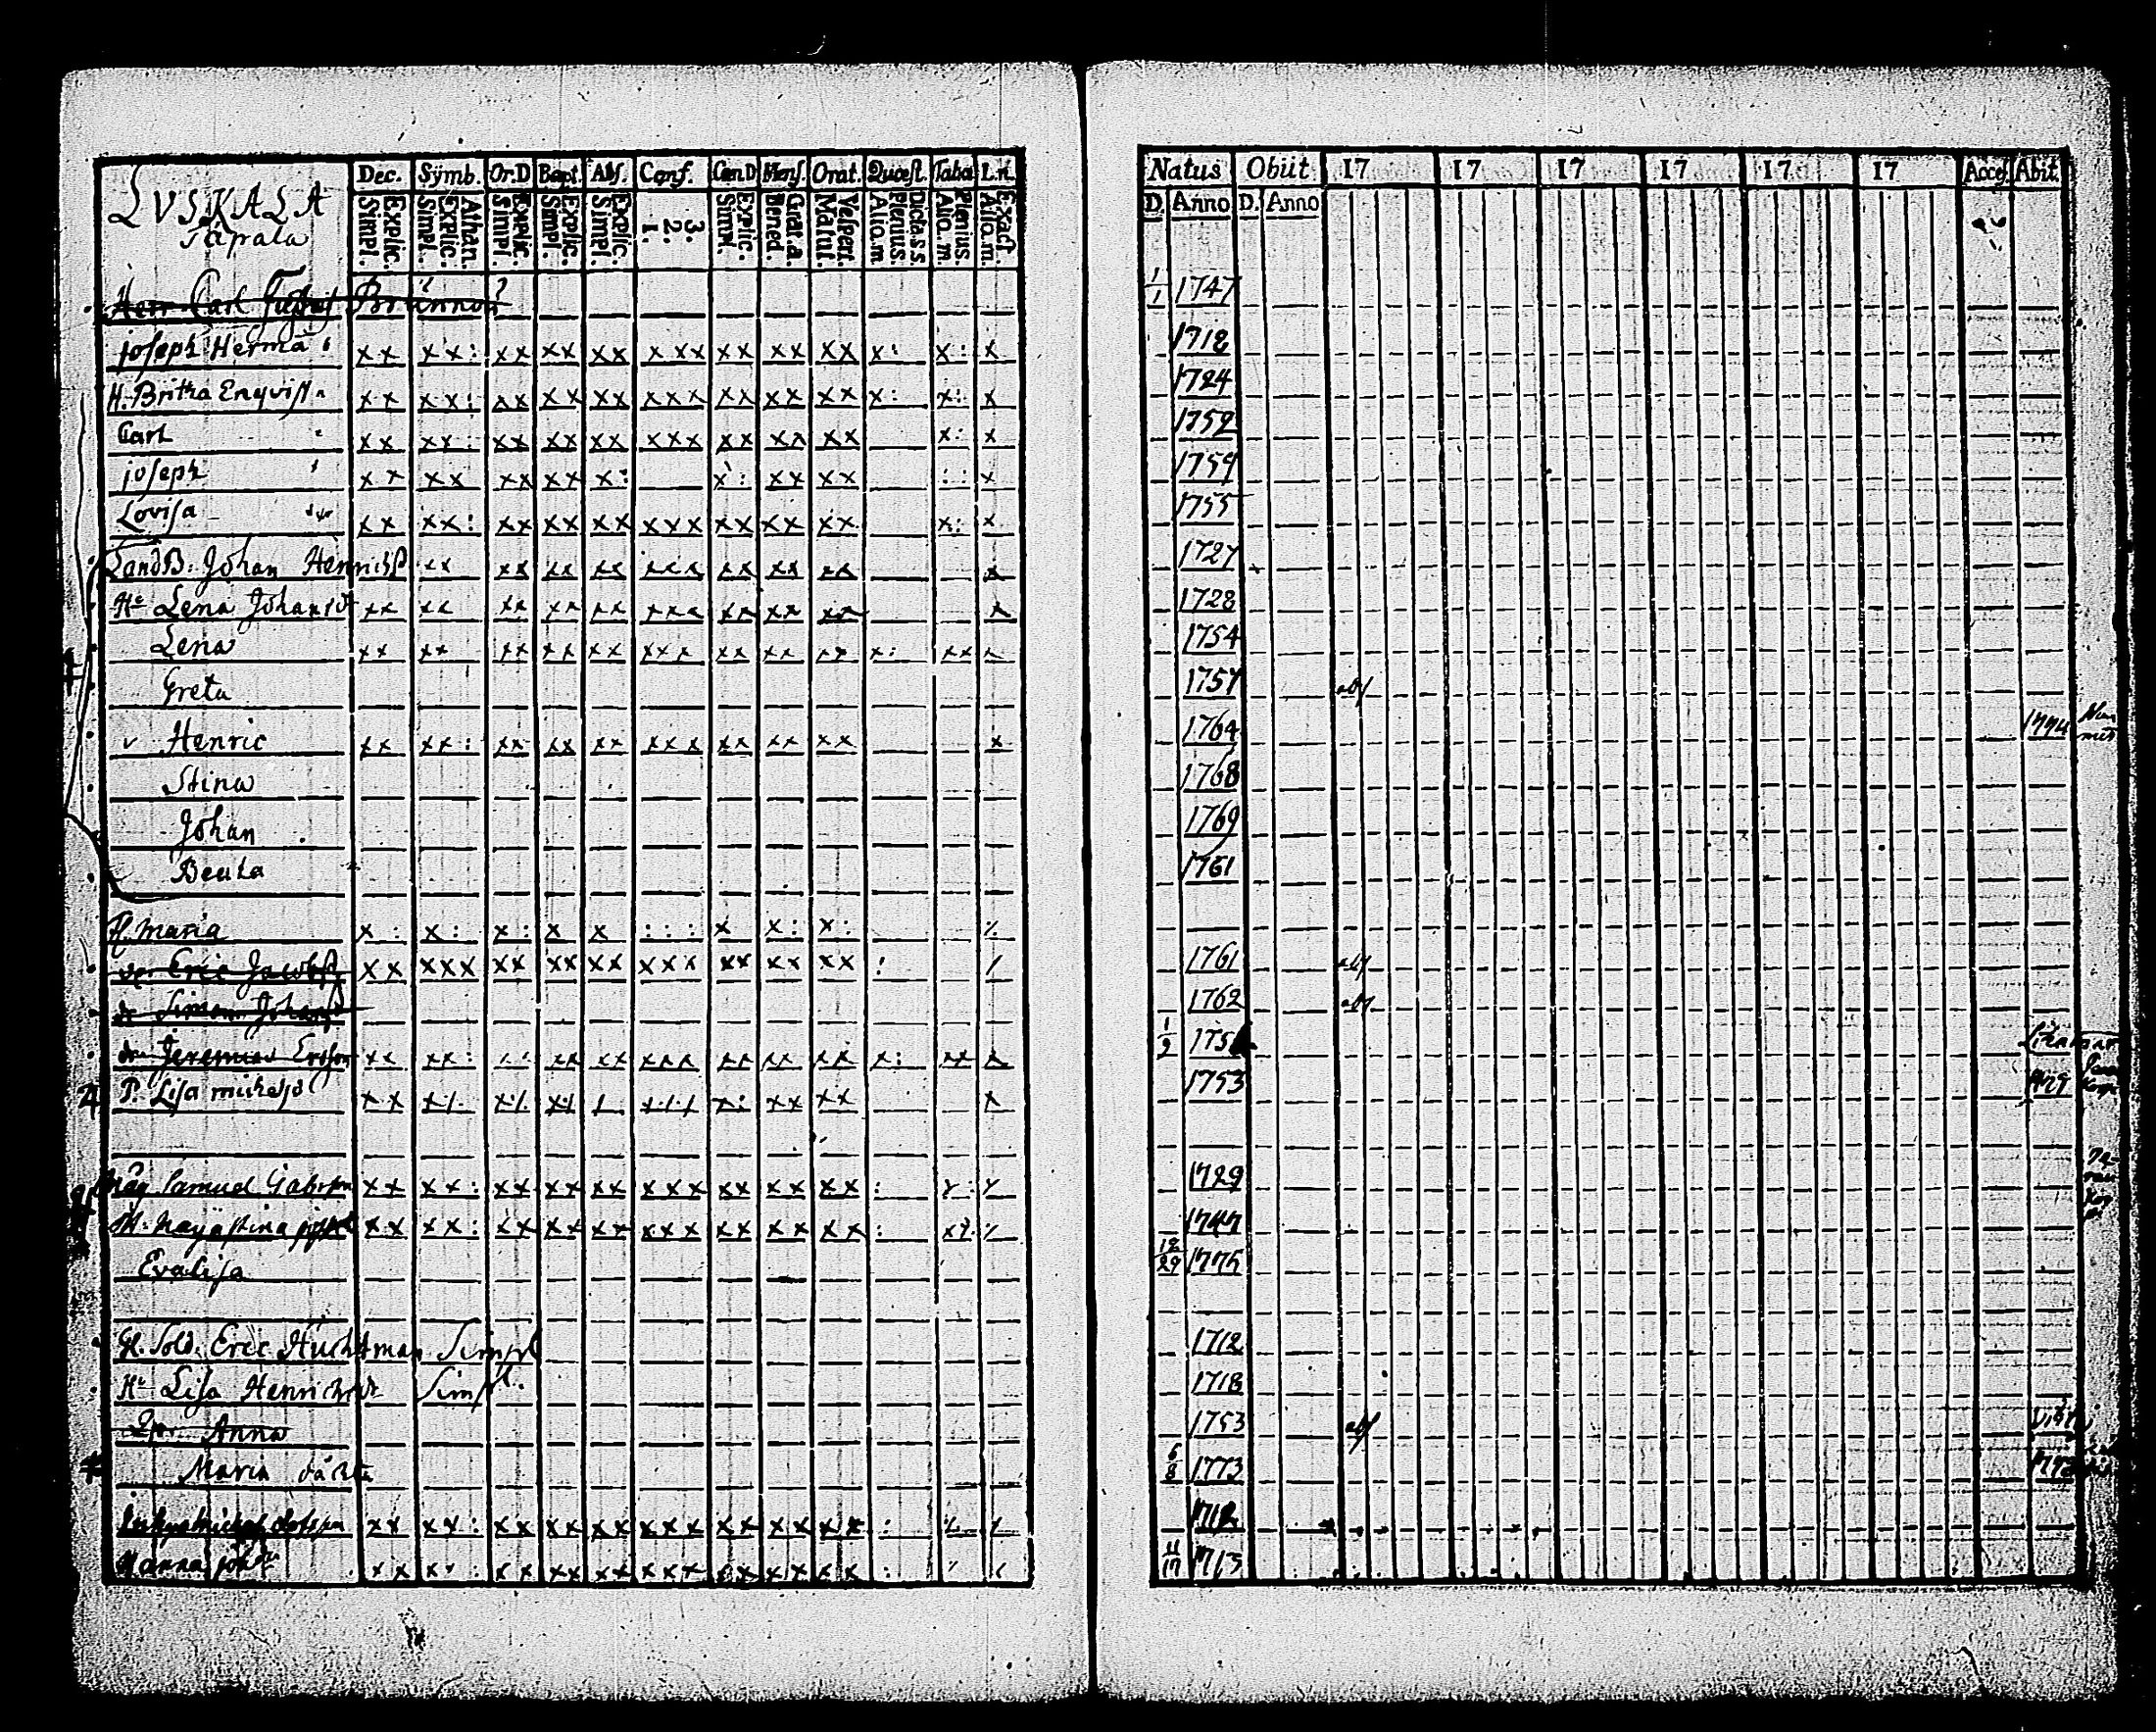 LUSKALA
Dec. Symb. Or.D Bapt. Abs. Conf. Cœn.D Mens. Orat. Quæst. Taba L.n.
Explic. Simpl. Athan. Explic. Simpl. Explic. Simpl. Explic. Simpl. Explic. Simpl. 3. 2. 1. Explic. Simpl. Grat.a. Bened. Vespert. Matut. Dicta.s.s. Plenius. Aliq.m. Plenius. Aliq.m. Exact. Aliq.m.
Natus Obiit 17 17 17 17 17 17 Acces. Abit.
D. Anno D. Anno
Herr Carl Brunnou 1/1 1747
joseph Herma xx xx: xx xx xx xxx xx xx xx x: x: x 1718
H. Britha Enqvist xx xx: xx xx xx xxx xx xx xx x: x: x 1724
Carl xx xx: xx xx xx xxx xx xx xx x: x 1752
joseph xx xx xx xx x: x: xx xx :: x 1759
Lovisa xx xx: xx xx xx xxx xx xx xx x: x 1755
LandB. Johan Henrichss xx xx xx xx xxx xx xx xx x 1727
Hu Lena Johansdr xx xx xx xx xx xxx xx xx xx x 1728
Lena xx xx xx xx xx xxx xx xx xx x: xx x 1754
Greta 1757 abs
v Henric xx xx: xx xx xx xxx xx xx xx x 1764 1774
Stina 1768
Johan 1769
Beata 1761
Fl. maria x: x: x: x x ::: x x: x:
dr. Eric Jacobss xx xxx xx xx xx xxx xx xx xx : / 1761 abs
dr Simon Johanss 1762 abs
dr Jeremias Ersson xx xx: xx xx xxx xx xx xx x: xx x 1/2
P. Lisa michelsd xx x 1753
Samuel Gabrson xx xx: xx xx xx xxx xx xx xx : 1729
xx xx: xx xx xx xxx xx xx xx : 1747
Evalisa 12/29 1775
Gl. Sold. Eric Huchtman Simpl 1712
Hu Lisa Henrichsdr Simpl. 1718
Anna 1753 abs
Maria 6/8 1773
xx xx: xx xx xx xxx xx xx xx : 1712
Hanna xx xx: xx xx xx xxx xx xx xx : 11/17 1713